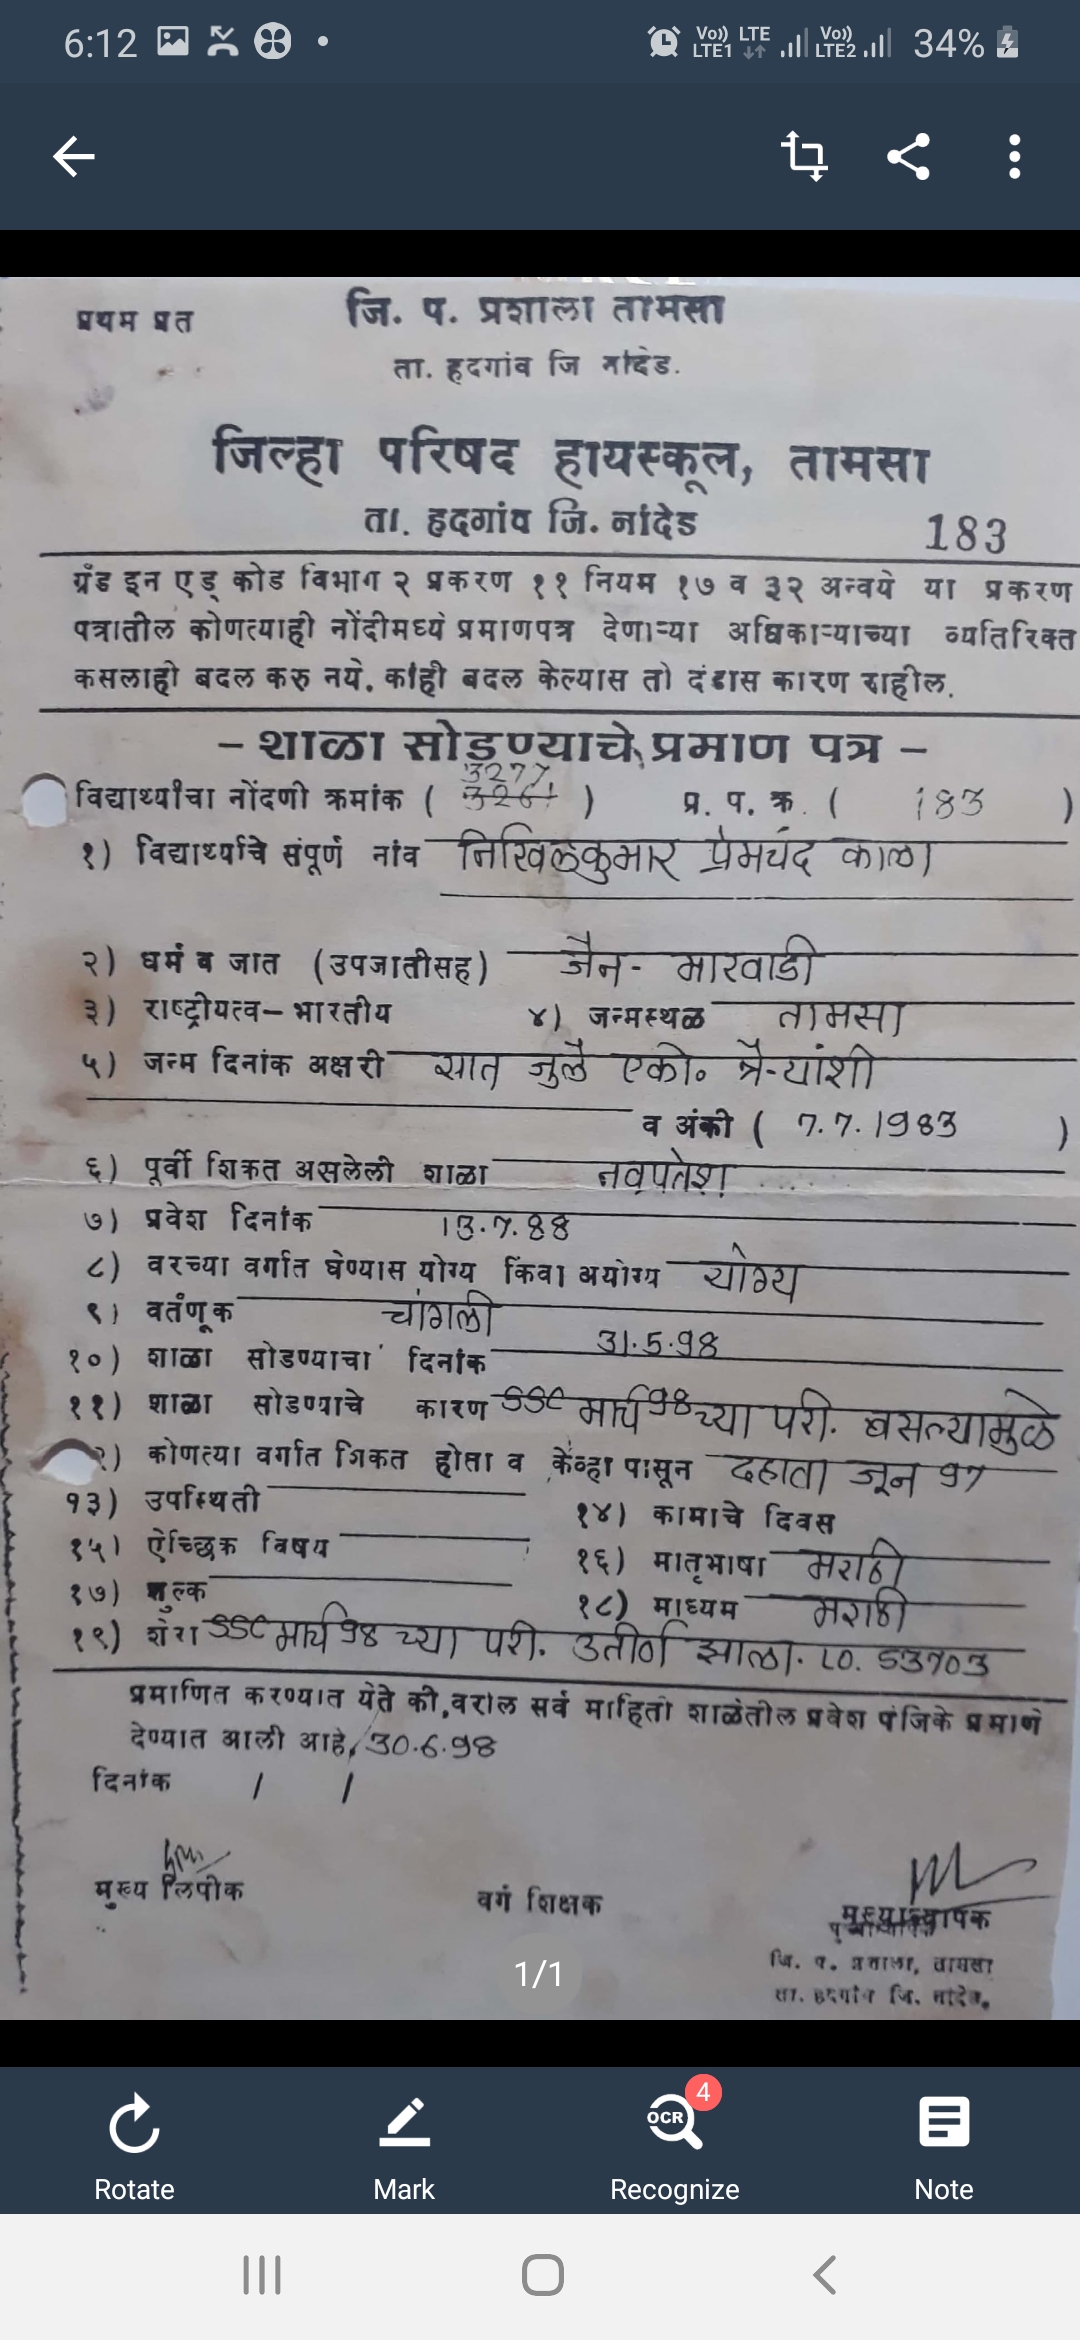 6:12 Vo)) LTE1 LTE Vo)) LTE2 34%
प्रथम प्रत
जि. प. प्रशाला तामसा
ता. हदगांव जि नांदेड.
जिल्हा परिषद हायस्कूल, तामसा
ता. हदगांव जि. नांदेड 183
ग्रँड इन एड् कोड विभाग २ प्रकरण ११ नियम १७ व ३२ अन्वये या प्रकरण
पत्रातील कोणत्याही नोंदीमध्ये प्रमाणपत्र देणाऱ्या अधिकाऱ्याच्या व्यतिरिक्त
कसलाही बदल करु नये. कांही बदल केल्यास तो दंडास कारण राहील.
- शाळा सोडण्याचे प्रमाण पत्र -
3277
विद्यार्थ्यांचा नोंदणी क्रमांक ( ) प्र. प. क्र. ( 183 )
१) विद्यार्थ्याचे संपूर्ण नांव निखिलकुमार प्रेमचंद काला
२) धर्म व जात (उपजातीसह) जैन- मारवाडी
३) राष्ट्रीयत्व- भारतीय ४) जन्मस्थळ तामसा
५) जन्म दिनांक अक्षरी सात जुलै एको० त्रै-यांशी
व अंकी ( 7.7.1983 )
६) पूर्वी शिकत असलेली शाळा नवप्रवेश
७) प्रवेश दिनांक 13.7.88
८) वरच्या वर्गात घेण्यास योग्य किंवा अयोग्य योग्य
९) वर्तणूक चांगली
१०) शाळा सोडण्याचा दिनांक 31.5.98
११) शाळा सोडण्याचे कारण SSC मार्च 98 च्या परी. बसल्यामुळे
२) कोणत्या वर्गात शिकत होता व केंव्हा पासून दहावा जून 97
१३) उपस्थिती १४) कामाचे दिवस
१५) ऐच्छिक विषय १६) मातृभाषा मराठी
१७) शुल्क १८) माध्यम मराठी
१९) शेरा SSC मार्च 98 च्या परी. उतीर्ण झाला. LO. 53703
प्रमाणित करण्यात येते की, वरील सर्व माहिती शाळेतील प्रवेश पंजिके प्रमाणे
देण्यात आली आहे, 30.6.98
दिनांक / /
मुख्य लिपीक वर्ग शिक्षक मुख्याध्यापक
जि. प. प्रशाला, तामसा
ता. हदगांव जि. नांदेड.
1/1
4
OCR
Rotate Mark Recognize Note